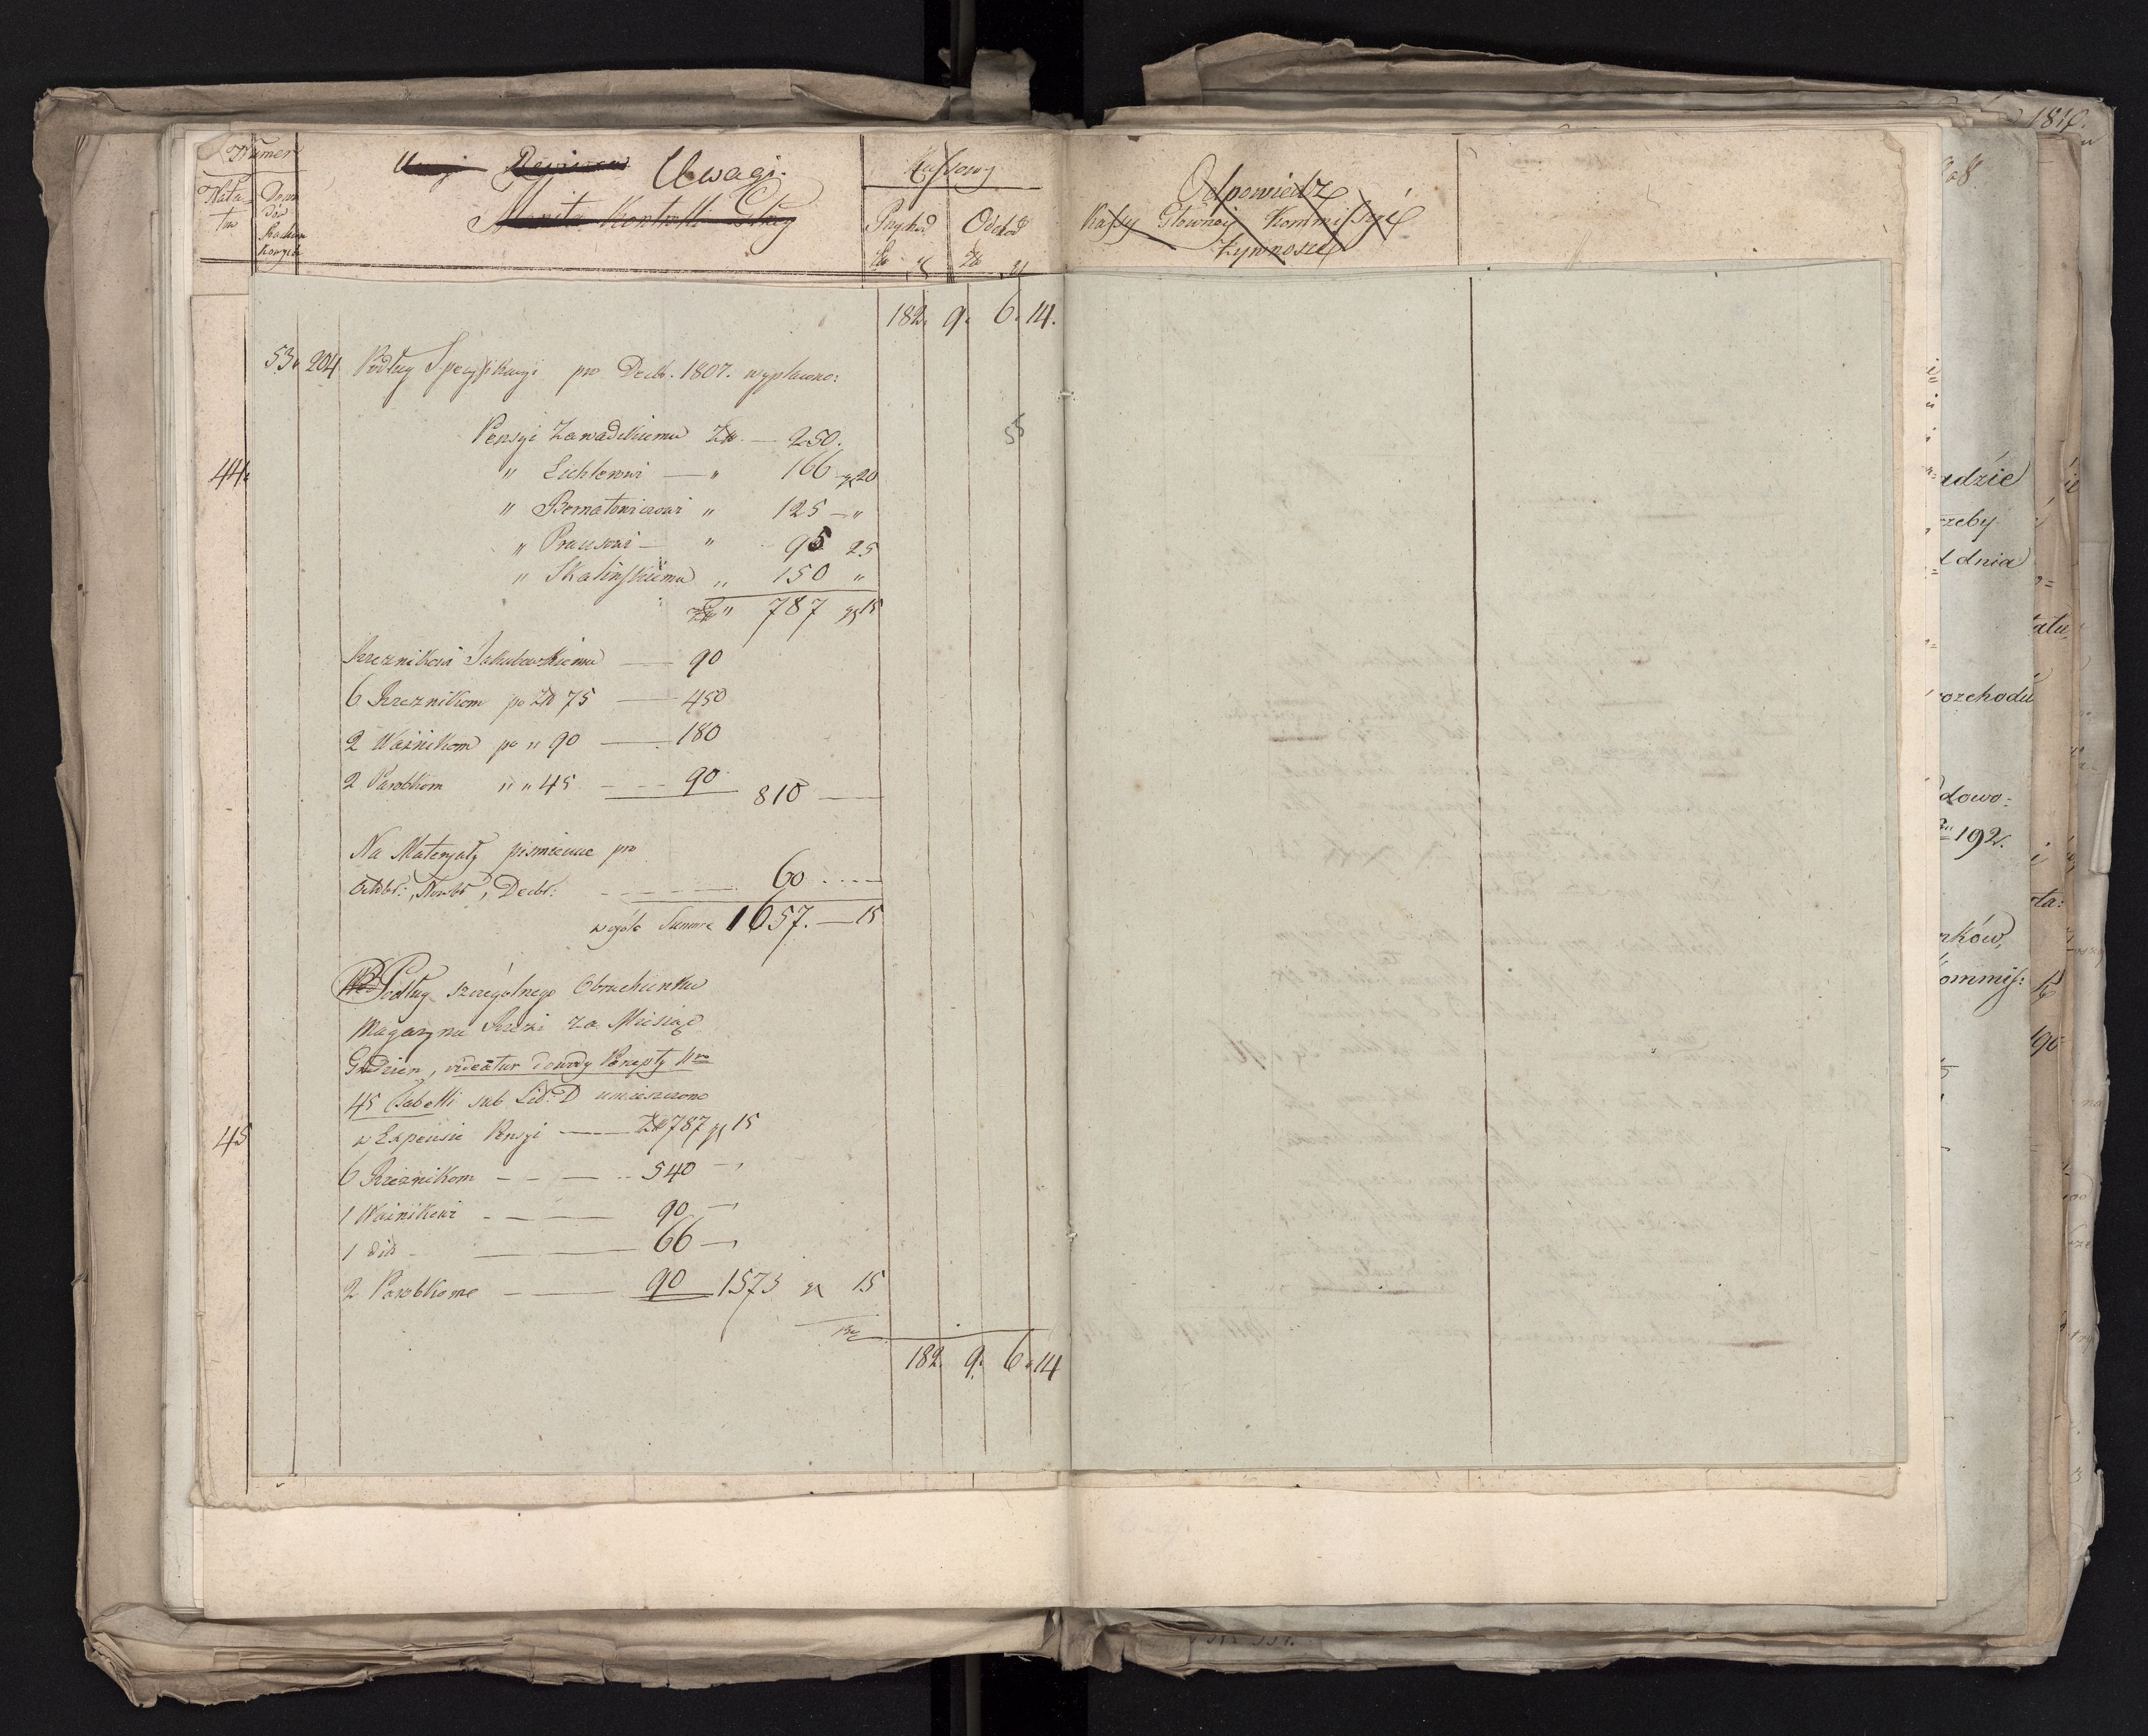 Numer
Uwagi.
Kassowy
Przychod Odchod
Odpowiedz
Kassy Głowney Kommissyi
Żywności
182. 9. 6. 14.
53. 204 Podług Specyfikacyi pro Decbr. 1807. wypłacono:
55
Pensyi Zawadzkiemu Zł. — 250.
44. " Lichtowi — " 166 gr 20
" Bornatowiczowi " 125 — "
" Prausowi — " 95 25
" Skalińskiemu " 150 "
Zł " 787 gr 15
Rzeznikowi Jakubowskiemu — 90
6 Rzeznikom po Zł 75 — 450
2 Ważnikom po " 90 — 180
2 Parobkom " " 45 — 90 810 —
Na Materyały pismienne pro
Octobr:, Novbr, Decbr: — 60
w ogóle Summa 1657. — 15
Podług szczególnego Obrachunku
Magazynu Rzezi za Miesiąc
Grudzien, videatur dowody Percepty Nro
45 Tabelli sub Lit: D umieszczono
45 w Expensie Pensyi — Zł 787 gr 15
6 Rzeznikom — 540 —
1 Ważnikowi — 90 —
1 dito — 66 —
2 Parobkome — 90 1573 gr 15
182. 9. 6. 14
1810.
adzie
rzeby
dnia
rozchodu
dowo:
192.
nków,
ommis:
190